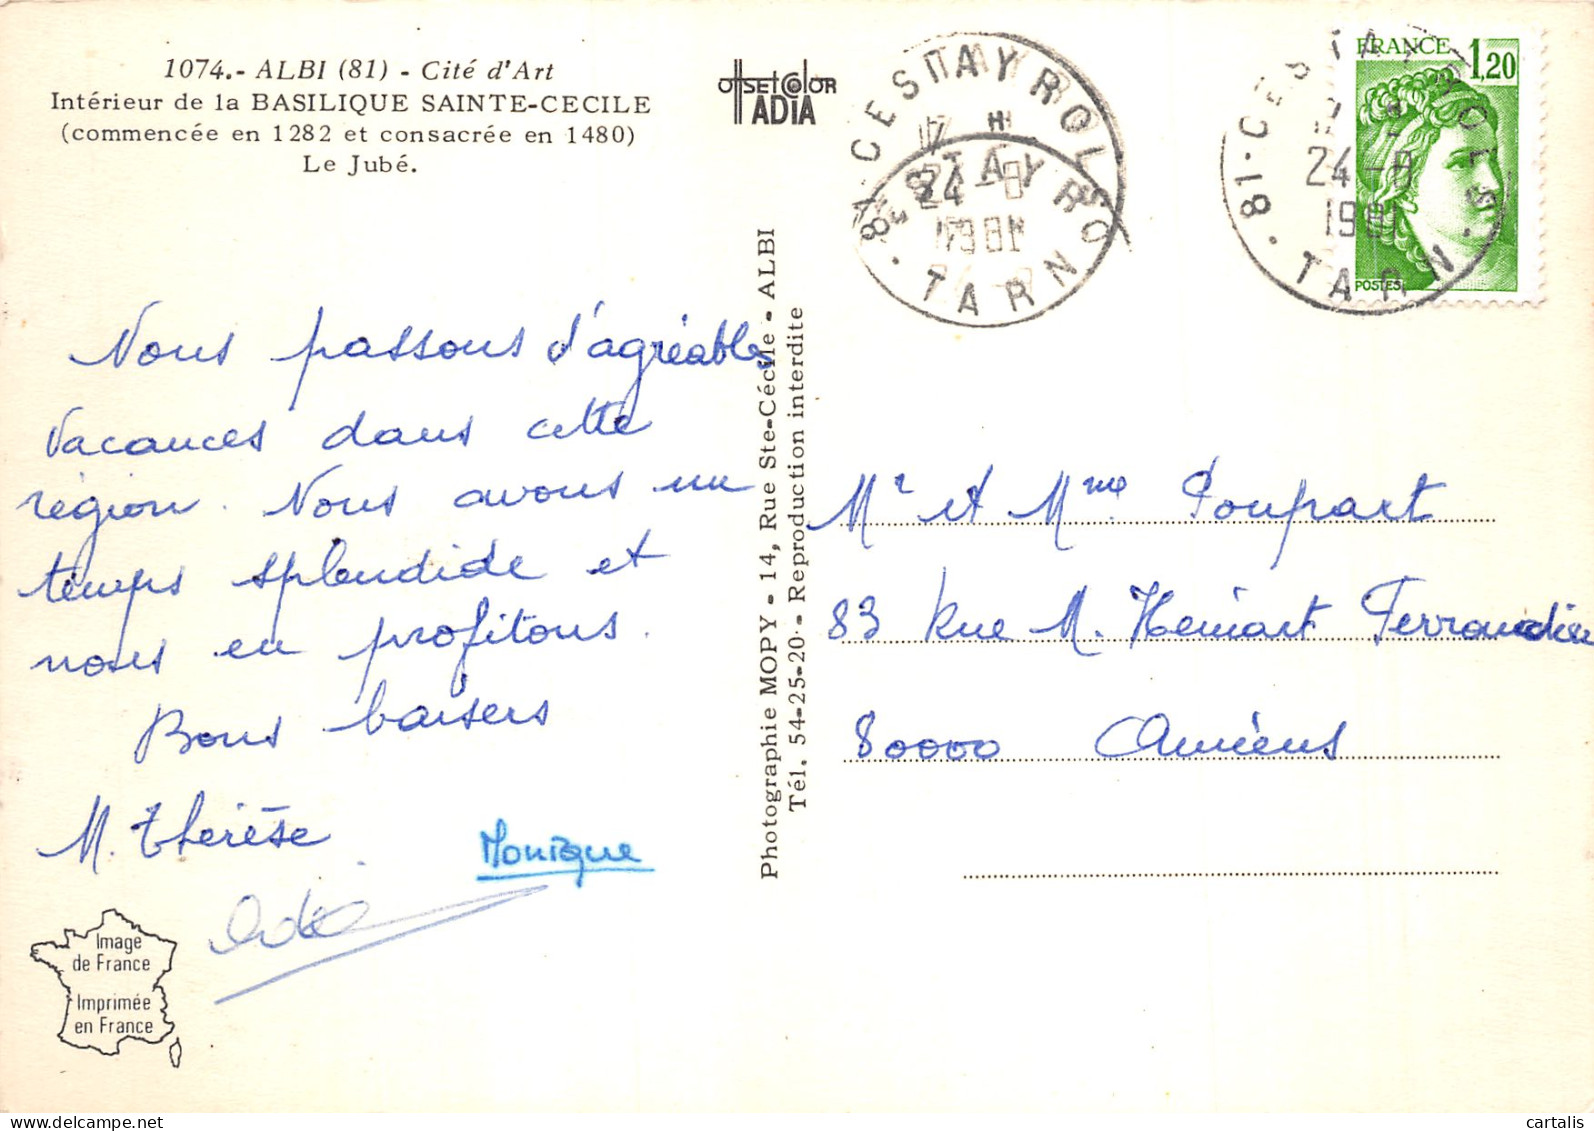 1074.- ALBI (81) - Cité d'Art
Intérieur de la BASILIQUE SAINTE-CECILE
(commencée en 1282 et consacrée en 1480)
Le Jubé.
offset color
ADIA
81 CESTAYROLS
17 H
24 -8
1981
TARN
ESTAYROLS
FRANCE
1,20
POSTES
81 · CESTAYROLS ·
24 -8
1981
TARN
Nous passons d'agréables
vacances dans cette
région. Nous avons un
temps splendide et
nous en profitons.
Bons baisers
M. Thérèse
Monique
Photographie MOPY - 14, Rue Ste-Cécile - ALBI
Tél. 54-25-20 - Reproduction interdite
Mr et Mme Poupart
83 Rue M. Ferrandier
80000 Amiens
Image
de France
Imprimée
en France
cartalis